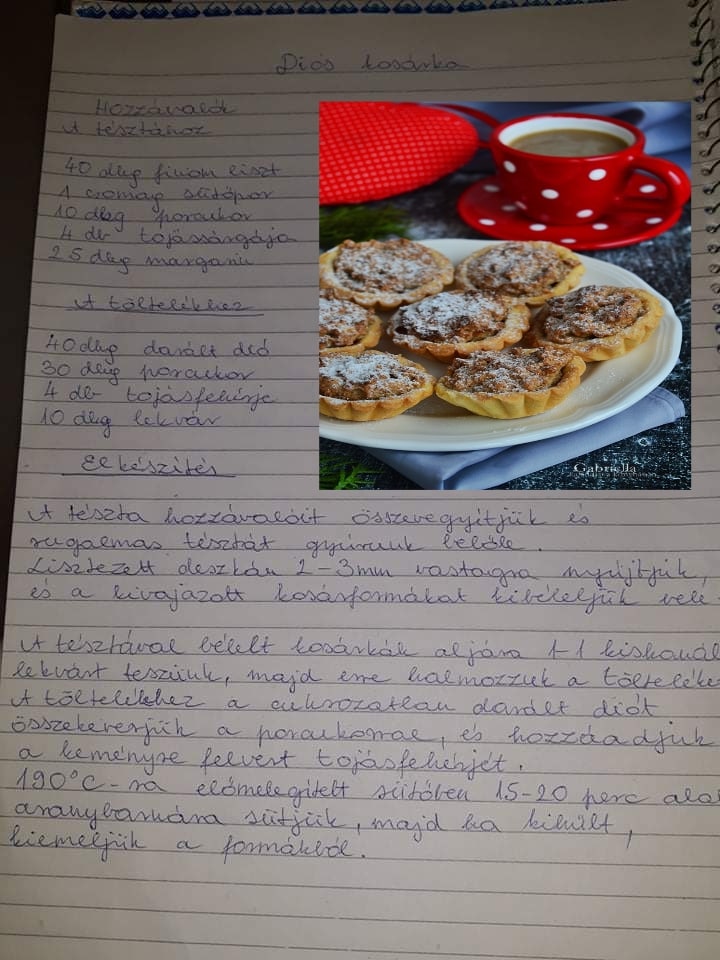 Diós kosárka
Hozzávalók
A tésztához
40 dkg finom liszt
1 csomag sütőpor
10 dkg porcukor
4 db tojássárgája
25 dkg margarin
A töltelékhez
40 dkg darált dió
30 dkg porcukor
4 db tojásfehérje
10 dkg lekvár
Elkészítés
Gabriella
A tészta hozzávalóit összevegyítjük és
rugalmas tésztát gyúrunk belőle.
Lisztezett deszkán 2-3mm vastagra nyújtjuk,
és a kivajazott kosárformákat kibéleljük vele
A tésztával bélelt kosárkák aljára 1-1 kiskanál
lekvárt teszünk, majd erre halmozzuk a tölteléke
A töltelékhez a cukrozatlan darált diót
összekeverjük a porcukorral, és hozzáadjuk
a keményre felvert tojásfehérjét.
190°C-ra előmelegített sütőben 15-20 perc alat
aranybarnára sütjük, majd ha kihűlt,
kiemeljük a formákból.